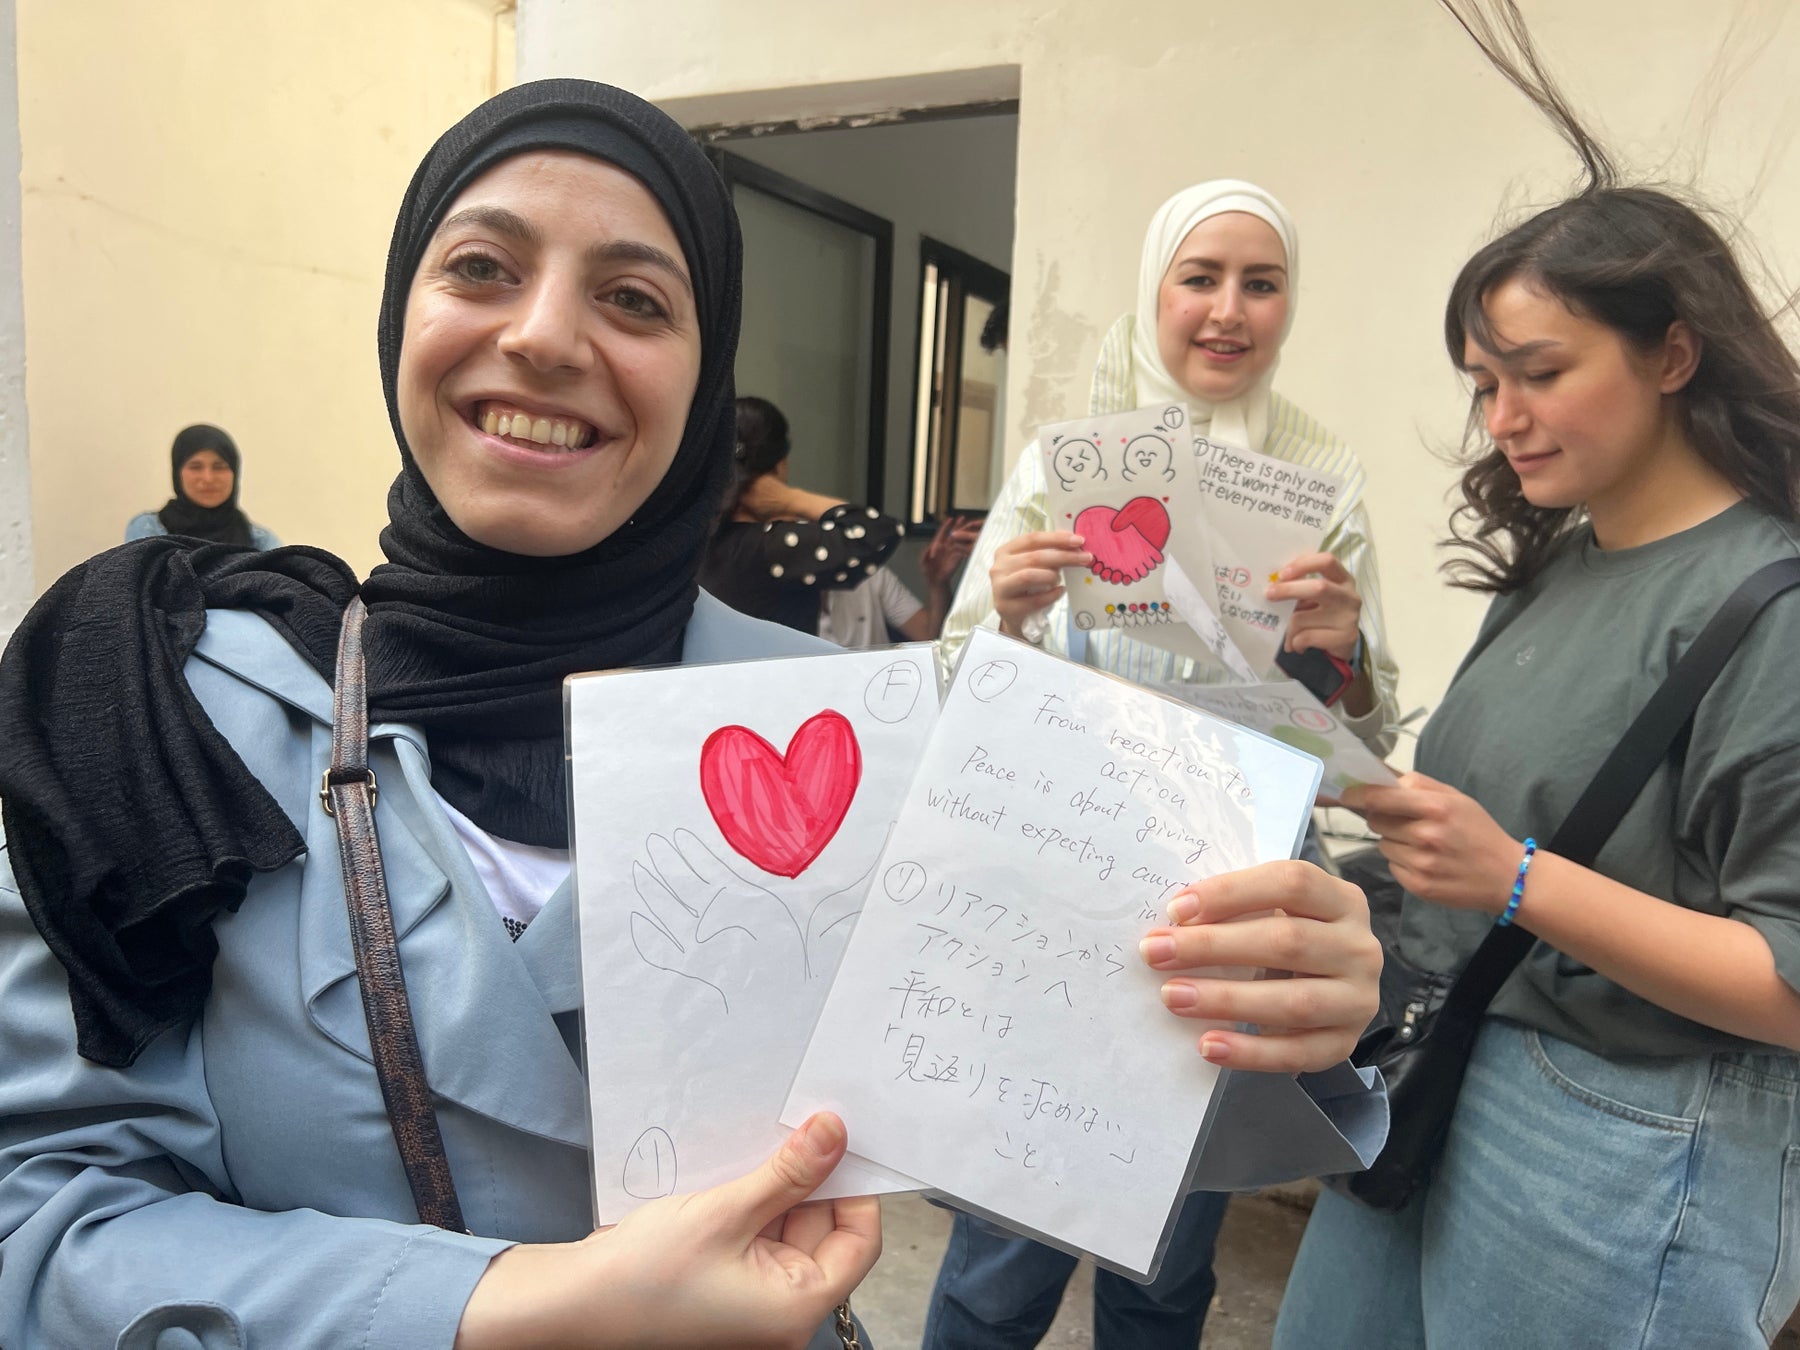 F
リ
F
From reaction to
action
Peace is about giving
without expecting
in
リ リアクションから
アクションへ
平和とは
「見返りを求めない」
こと.
T
T There is only one
life. I wont to prote
ct everyone's lives.
たい
しなの笑顔